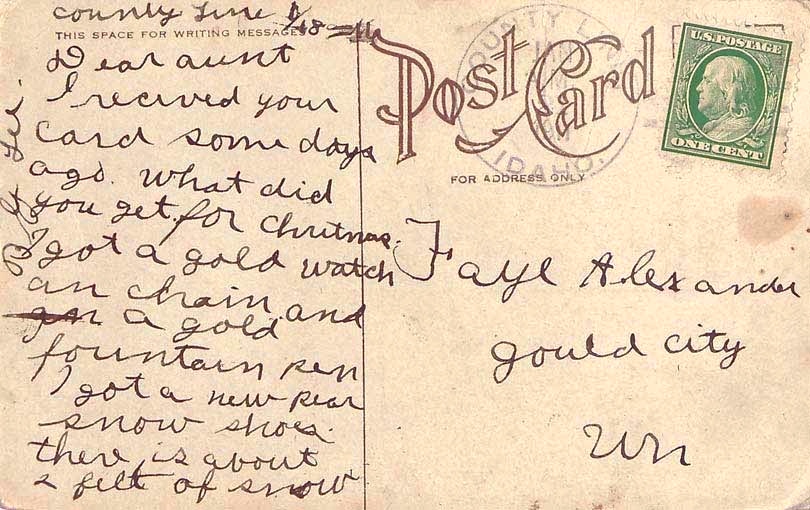 county Line
1/18-11
THIS SPACE FOR WRITING MESSAGES
Dear aunt
I recived your
card some days
ago. what did
you get for Chritmas.
I got a gold watch
an chain and
a gold
fountain pen
I got a new pear
snow shoes.
there is about
2 felt of snow
Post Card
COUNTY LINE
IDAHO.
FOR ADDRESS ONLY
U.S. POSTAGE
ONE CENT
Faye Alexander
gould city
Wn